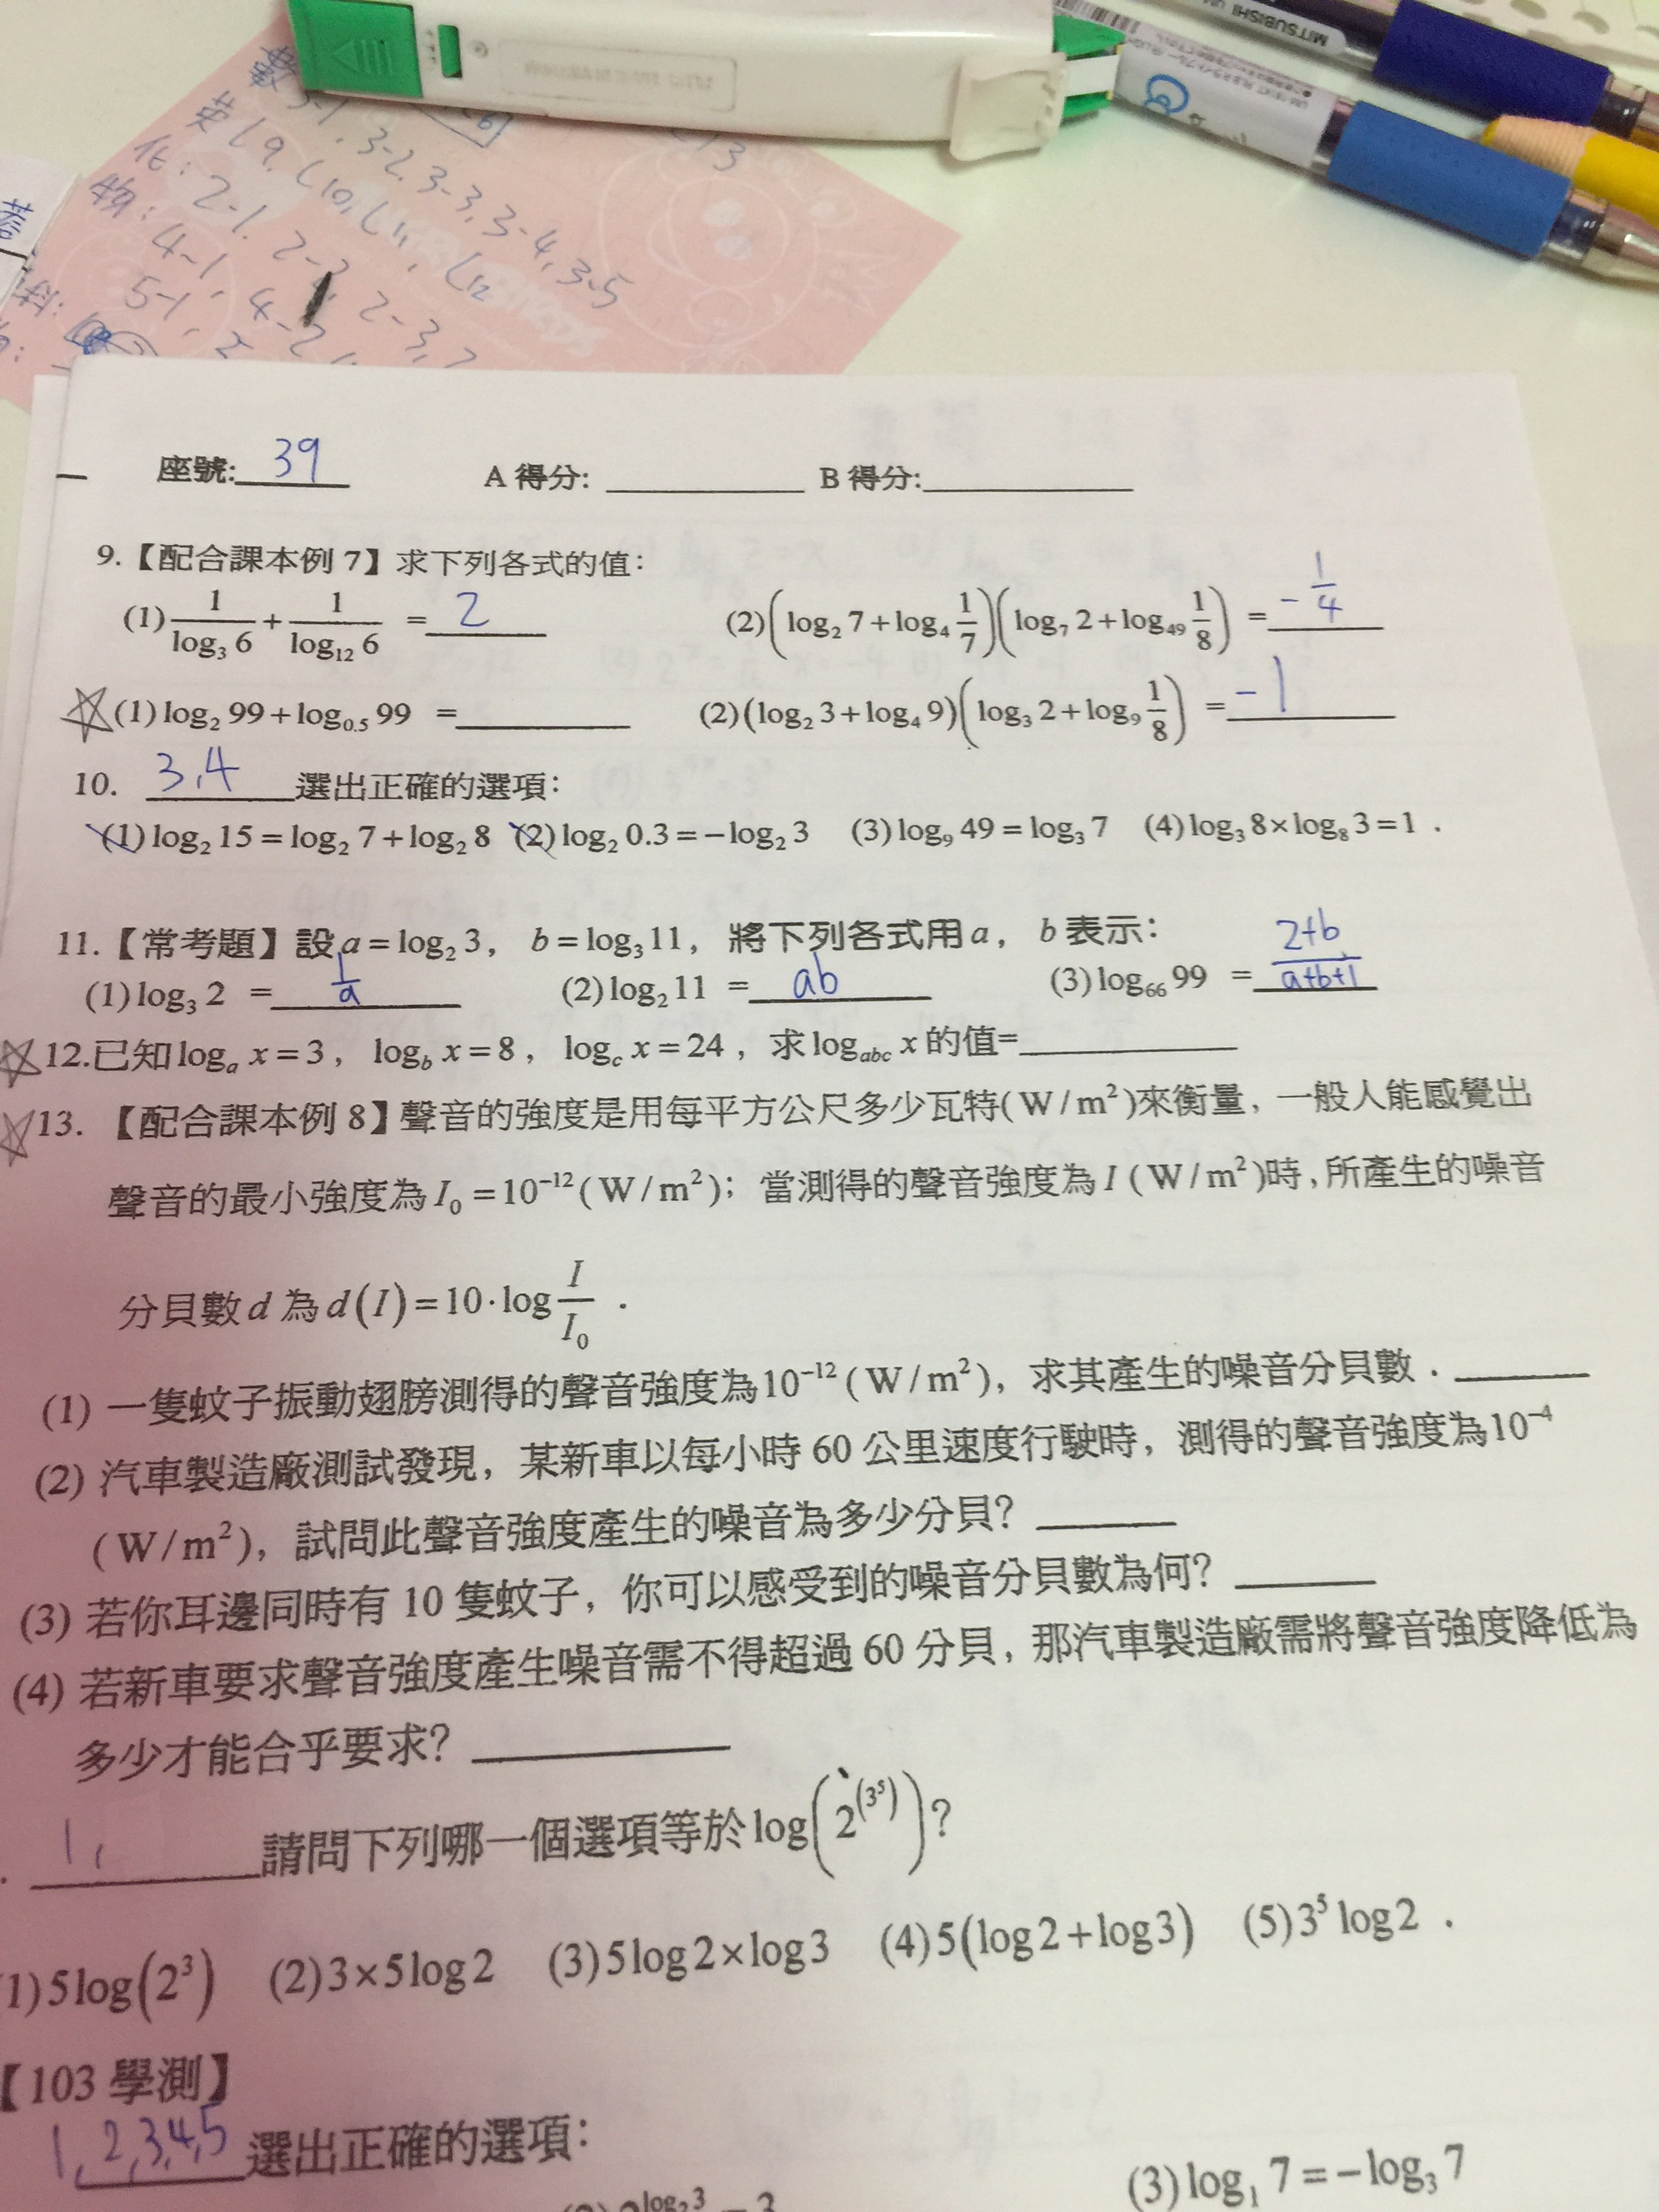 MITSUBISHI
3-1, 3-2, 3-3, 3-4, 3-5
英 L9, L10, L11, L12
化: 2-1, 2-2, 2-3,
物: 4-1, 4-2,
5-1,
座號: 39 A 得分: B 得分:
9.【配合課本例 7】求下列各式的值:
(1) 1/log₃ 6 + 1/log₁₂ 6 = 2 (2) (log₂ 7 + log₄ 1/7)(log₇ 2 + log₄₉ 1/8) = -1/4
☆(1) log₂ 99 + log₀.₅ 99 = (2) (log₂ 3 + log₄ 9)(log₃ 2 + log₉ 1/8) = -1
10. 3,4 選出正確的選項:
(1) log₂ 15 = log₂ 7 + log₂ 8 (2) log₂ 0.3 = -log₂ 3 (3) log₉ 49 = log₃ 7 (4) log₃ 8 × log₈ 3 = 1 .
11.【常考題】設 a = log₂ 3, b = log₃ 11, 將下列各式用 a, b 表示:
(1) log₃ 2 = 1/a (2) log₂ 11 = ab (3) log₆₆ 99 = 2+b/a+b+1
☆12.已知 logₐ x = 3, log_b x = 8, log_c x = 24, 求 log_abc x 的值=
☆13.【配合課本例 8】聲音的強度是用每平方公尺多少瓦特(W/m²)來衡量, 一般人能感覺出
聲音的最小強度為 I₀ = 10⁻¹² (W/m²); 當測得的聲音強度為 I (W/m²)時,所產生的噪音
分貝數 d 為 d(I) = 10·log I/I₀ .
(1) 一隻蚊子振動翅膀測得的聲音強度為 10⁻¹² (W/m²), 求其產生的噪音分貝數 .
(2) 汽車製造廠測試發現, 某新車以每小時 60 公里速度行駛時, 測得的聲音強度為 10⁻⁴
(W/m²), 試問此聲音強度產生的噪音為多少分貝?
(3) 若你耳邊同時有 10 隻蚊子, 你可以感受到的噪音分貝數為何?
(4) 若新車要求聲音強度產生噪音需不得超過 60 分貝, 那汽車製造廠需將聲音強度降低為
多少才能合乎要求?
. 1, 請問下列哪一個選項等於 log(2^(3⁵))?
1) 5log(2³) (2) 3×5log2 (3) 5log2×log3 (4) 5(log2+log3) (5) 3⁵log2 .
【103 學測】
1,2,3,4,5 選出正確的選項:
log₂3 = 3 (3) log₁ 7 = -log₃ 7